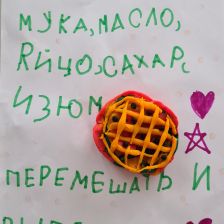 МУКА, МАСЛО,
ЯЙЦО, САХАР,
ИЗЮМ
ПЕРЕМЕШАТЬ И